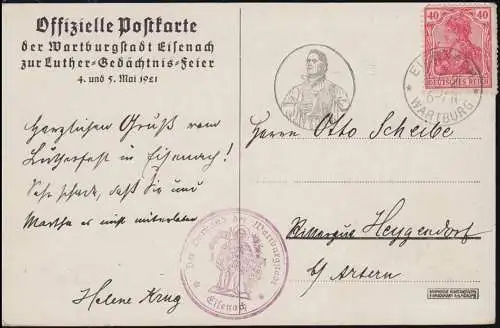 Offizielle Postkarte
der Wartburgstadt Eisenach
zur Luther-Gedächtnis-Feier
4. und 5. Mai 1921
Herzlichen Gruß vom
Lutherfest in Eisenach!
Sehr schade, daß Sie und
Martha es nicht miterleben
Helene Krug
Der Vorstand der Wartburgstadt
Eisenach
40 40
DEUTSCHES REICH
WARTBURG
Herrn Otto Scheibe
Rittergut Heygendorf
b/ Artern